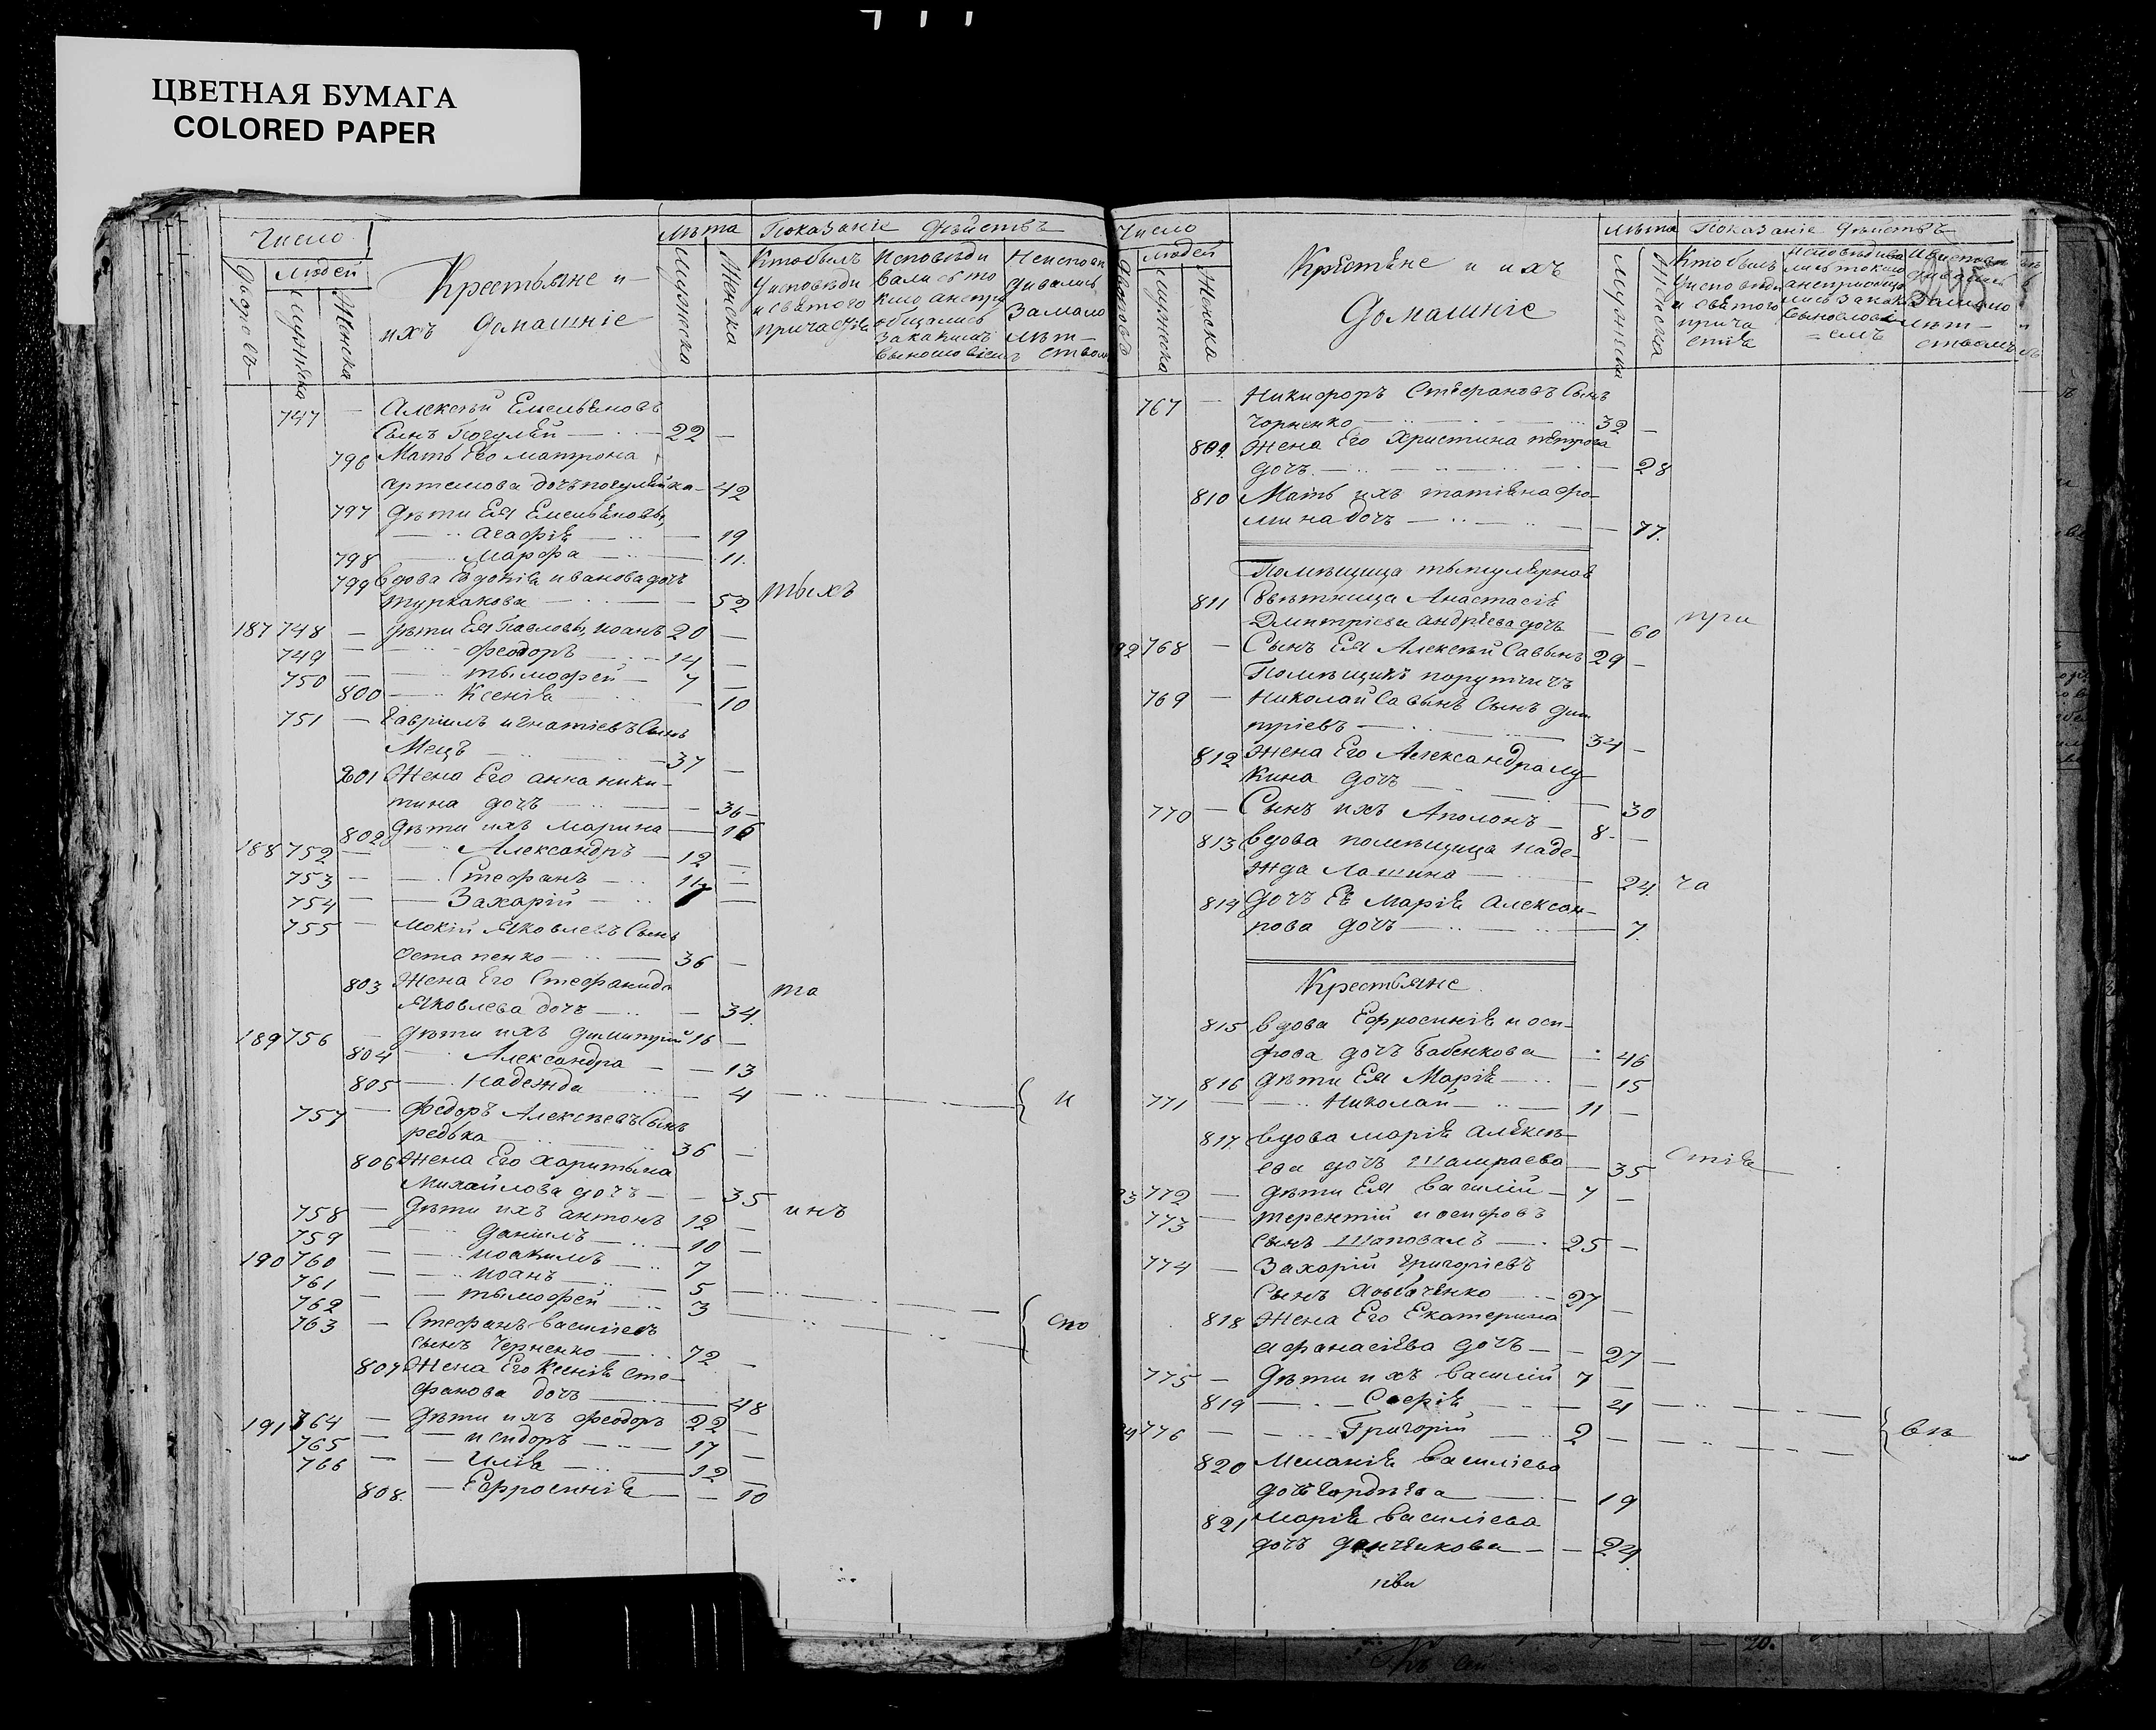 ЦВЕТНАЯ БУМАГА
COLORED PAPER
Число
Людей
Дворовъ
Мужеска
Женска
Крестьяне и
ихъ домашніе
Лѣта
Мужеска
Женска
Показаніе дѣйствъ
Кто былъ
У исповѣди
и святого
Причастія
Исповѣди
вались то
кмо а не прі
общались
За какимъ
винословіемъ
Не испов
дивались
За мало
лѣт-
ствомъ
747 — Алексѣй Емельяновъ
Сынъ Погулѣй — 22 —
796 Мать Его Матрона
Артемова дочь Погулѣйка — 42
797 Дѣти Ея Емельяновы,
Агафія — 19
798 — Марфа — 11.
799 Вдова Евдокія Иванова дочь
Турканова — 52 тыхъ
187 748 — Дѣти Ея Павловы, Иоанъ 20 —
749 — Феодоръ — 14 —
750 — Тымофей — 7 —
800 — Ксенія — 10
751 — Гавріилъ Игнатіевъ Сынъ
Мецъ — 37 —
801 Жена Его Анна Ники-
тина дочь — 36 —
802 Дѣти ихъ Марина — 16
188 752 — Александръ — 12 —
753 — Стефанъ — 11 —
754 — Захарій —
755 — Мокій Яковлевъ Сынъ
Остапенко — 36 —
803 Жена Его Стефанида
Яковлева дочь — 34. та
189 756 — Дѣти ихъ Димитрій 16 —
804 — Александра — 13
805 — Надежда — 4 — и
757 — Федоръ Алексѣевъ Сынъ
редька — 36 —
806 Жена Его Харитына
Михайлова дочь — 35 инъ
758 — Дѣти ихъ Антонъ 12 —
759 — Даніилъ — 10 —
190 760 — Иоакимъ — 7
761 — Иоанъ — 5
762 — Тымофей — 3 — спо
763 — Стефанъ Василіевъ
Сынъ Черненко — 72 —
807 Жена Его Ксенія Сте-
фанова дочь — 48
191 764 — Дѣти ихъ Феодоръ 22 —
765 — Исидоръ — 17 —
766 — Илія — 12 —
808. — Евфросинія — 10
Число
Людей
Дворовъ
Мужеска
Женска
Крестяне и ихъ
Домашніе
Лѣта
Мужеска
Женска
Показаніе дѣйствъ
Кто былъ
У исповѣди
и святого
прича
стія
За мало
лѣт-
ствомъ
767 — Никифоръ Стефановъ Сынъ
Чорненко — 32 —
809. Жена Его Христина Петрова
дочь. — 28
810 Мать ихъ Татіяна Фо-
мина дочь — 77.
Помѣщица Тытулярная
811 Совѣтница Анастасія
Дмитріева Андрѣева дочь — 60 при
92 768 — Сынъ Ея Алексѣй Савынъ 29 —
Помѣщикъ порутчикъ
769 — Николай Савынъ Сынъ Дми
тріевъ — 34 —
812 Жена Его Александра Лу-
кина дочь — 30
770 — Сынъ ихъ Аполонъ — 8 —
813 Вдова помѣщица Наде-
жда Лашина — 24. ча
814 Дочь Ея Марія Алексан-
рова дочь — 7.
Крестьяне
815 Вдова Ефросинія Иоси-
фова дочь Бабенкова — 46
816 Дѣти Ея Марія — 15
771 — Николай — 11 —
817. Вдова Марія Алексѣ-
ева дочь Шамраева — 35 стія
93 772 — Дѣти Ея Василій — 7 —
773 — Терентій Иосифовъ
Сынъ Шаповалъ — 25 —
774 — Захарій Григоріевъ
Сынъ — 27 —
818 Жена Его Екатерина
Афанасіева дочь — 27 —
775 — Дѣти ихъ Василій 7 —
819 — Софія — 4
94 776 — Григорій — 2 — вѣ
820 Меланія Василіева
дочь Гордѣева — 19
821 Марія Василіева
дочь — 24.